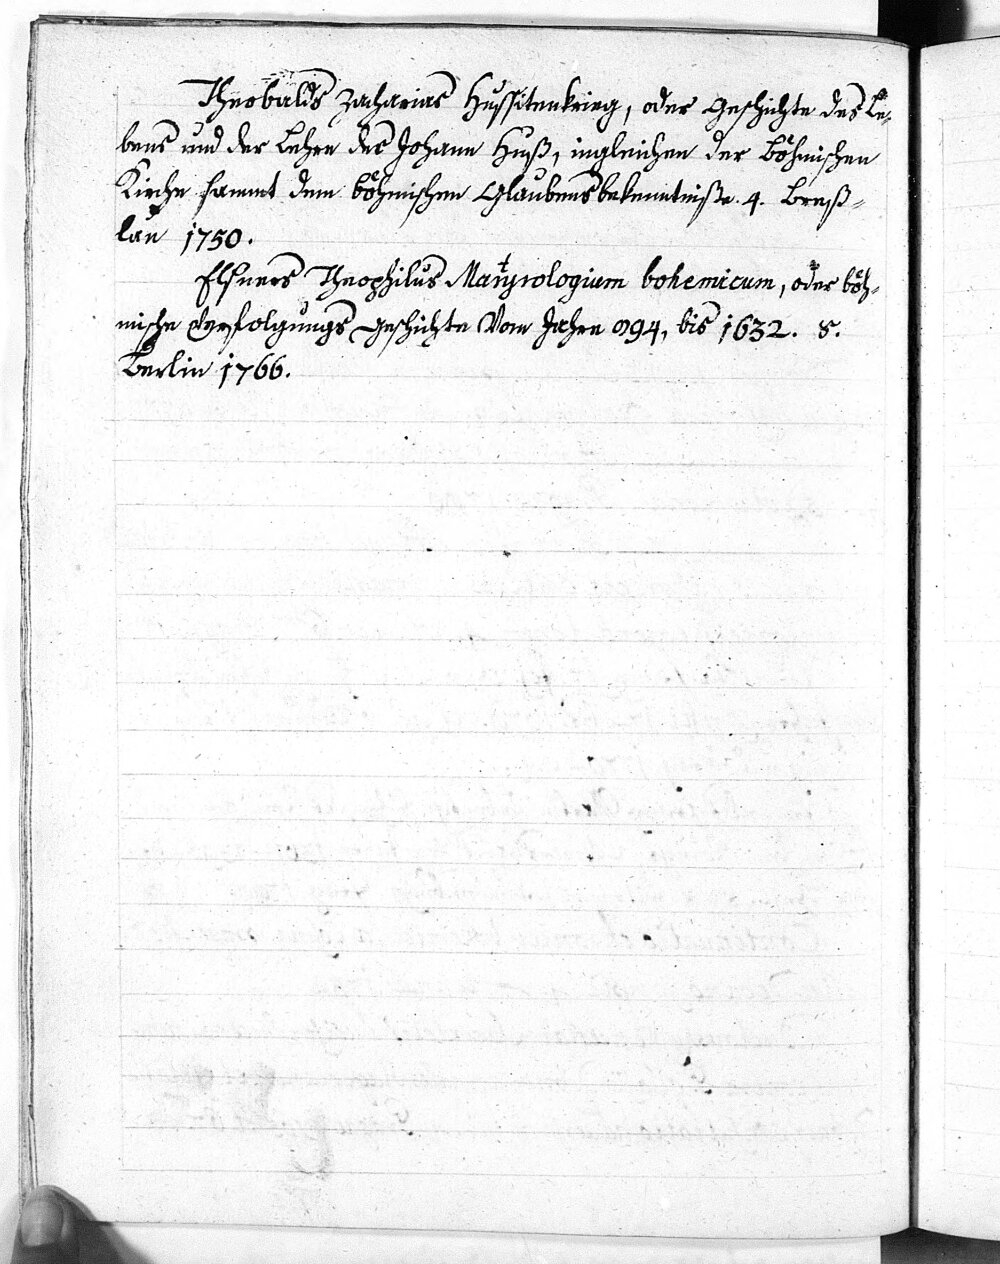 Theobalds Zacharias Hussitenkrieg, oder Geschichte des Le-
bens und der Lehre des Johann Huß, ingleichen der böhmischen
Kirche sammt dem böhmischen Glaubensbekenntniße. 4. Breß-
lau 1750.
Elsners Theophilus Martyrologium bohemicum, oder böh-
mische Verfolgungs Geschichte vom Jahre 894, bis 1632. 8.
Berlin 1766.